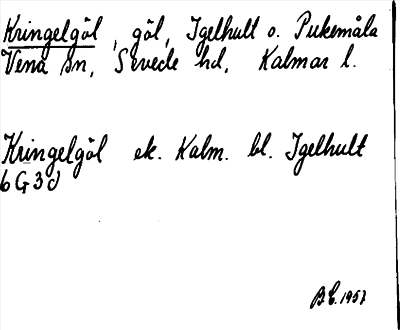 Kringelgöl, göl, Igelhult o. Pukemåla
Vena sn, Sevede hd, Kalmar l.
Kringelgöl ek. Kalm. bl. Igelhult
6G3d
B.E. 1957